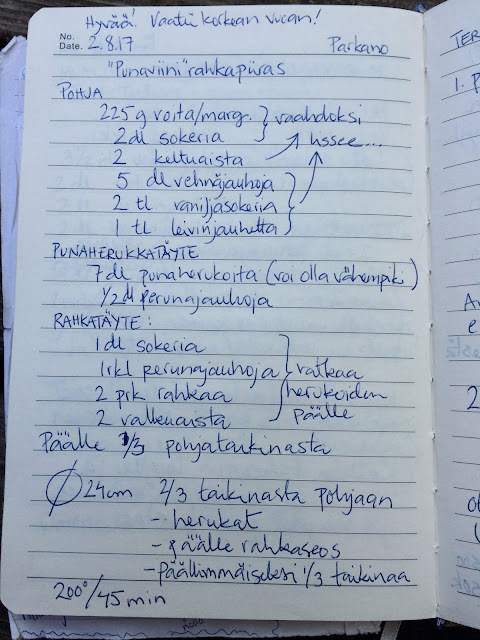 Hyvää! Vaatii korkean vuoan!
No.
Date. 2.8.17 Parkano
"Punaviini" rahkapiiras
POHJA
225 g voita/marg. } vaahdoksi
2 dl sokeria
2 keltuaista lissee...
5 dl vehnäjauhoja
2 tl vaniljasokeria
1 tl leivinjauhetta
PUNAHERUKKATÄYTE
7 dl punaherukoita (voi olla vähempiki)
1/2 dl perunajauhoja
RAHKATÄYTE:
1 dl sokeria
1 rkl perunajauhoja } ratkaa
2 prk rahkaa herukoiden
2 valkuaista päälle
Päälle 1/3 pohjataikinasta
Ø 24cm 2/3 taikinasta pohjaan
- herukat
- päälle rahkaseos
- päällimmäiseksi 1/3 taikinaa
200°/45 min
TER
1. P
2